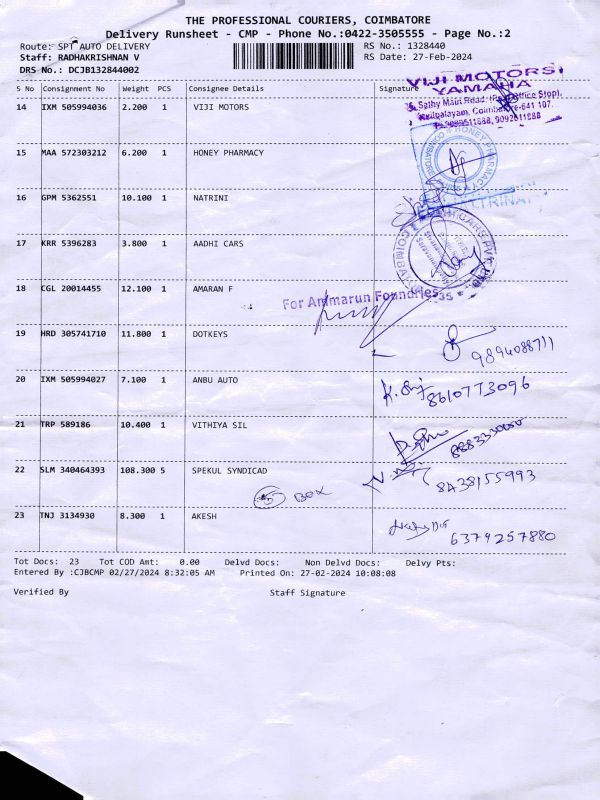 THE PROFESSIONAL COURIERS, COIMBATORE
Delivery Runsheet - CMP - Phone No.:0422-3505555 - Page No.:2
Route: SPT AUTO DELIVERY RS No.: 1328440
Staff: RADHAKRISHNAN V RS Date: 27-Feb-2024
DRS No.: DCJB132844002
S No Consignment No Weight PCS Consignee Details Signature
VIJI MOTORS
YAMAHA
14 IXM 505994036 2.200 1 VIJI MOTORS
Sathy Main Road
15 MAA 572303212 6.200 1 HONEY PHARMACY
HONEY PHARMACY
16 GPM 5362551 10.100 1 NATRINI
17 KRR 5396283 3.800 1 AADHI CARS
18 CGL 20014455 12.100 1 AMARAN F
For Ammarun Foundries
19 HRD 305741710 11.800 1 DOTKEYS
9894088711
20 IXM 505994027 7.100 1 ANBU AUTO
8610773096
21 TRP 589186 10.400 1 VITHIYA SIL
22 SLM 340464393 108.300 5 SPEKUL SYNDICAD
5 Box 8438155993
23 TNJ 3134930 8.300 1 AKESH
6379257880
Tot Docs: 23 Tot COD Amt: 0.00 Delvd Docs: Non Delvd Docs: Delvy Pts:
Entered By :CJBCMP 02/27/2024 8:32:05 AM Printed On: 27-02-2024 10:08:08
Verified By Staff Signature